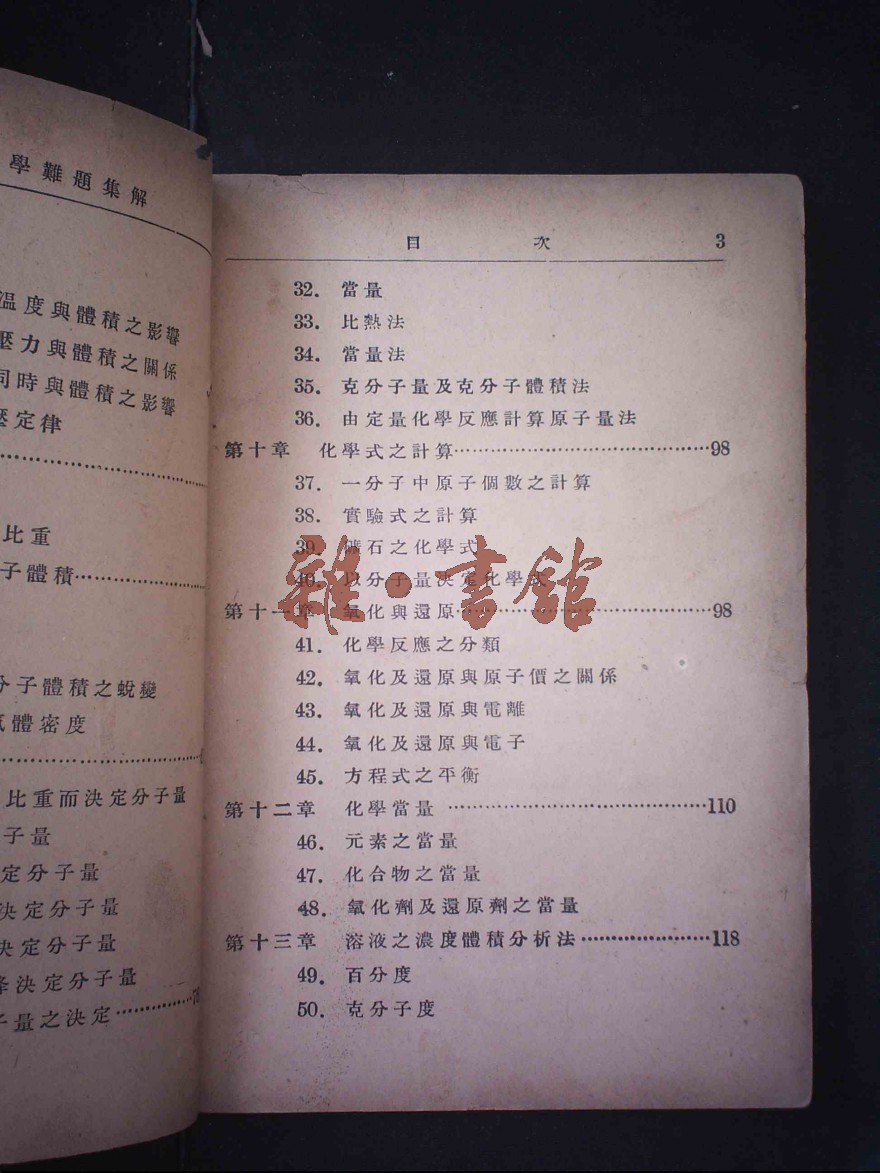 學難題集解
溫度與體積之影響
壓力與體積之關係
同時與體積之影響
定律
比重
子體積
分子體積之蛻變
氣體密度
比重而決定分子量
子量
定分子量
決定分子量
決定分子量
決定分子量
量之決定
目次 3
32. 當量
33. 比熱法
34. 當量法
35. 克分子量及克分子體積法
36. 由定量化學反應計算原子量法
第十章 化學式之計算……98
37. 一分子中原子個數之計算
38. 實驗式之計算
39. 礦石之化學式
40. 以分子量決定化學式
第十一章 氧化與還原……98
41. 化學反應之分類
42. 氧化及還原與原子價之關係
43. 氧化及還原與電離
44. 氧化及還原與電子
45. 方程式之平衡
第十二章 化學當量……110
46. 元素之當量
47. 化合物之當量
48. 氧化劑及還原劑之當量
第十三章 溶液之濃度體積分析法……118
49. 百分度
50. 克分子度
雜·書館